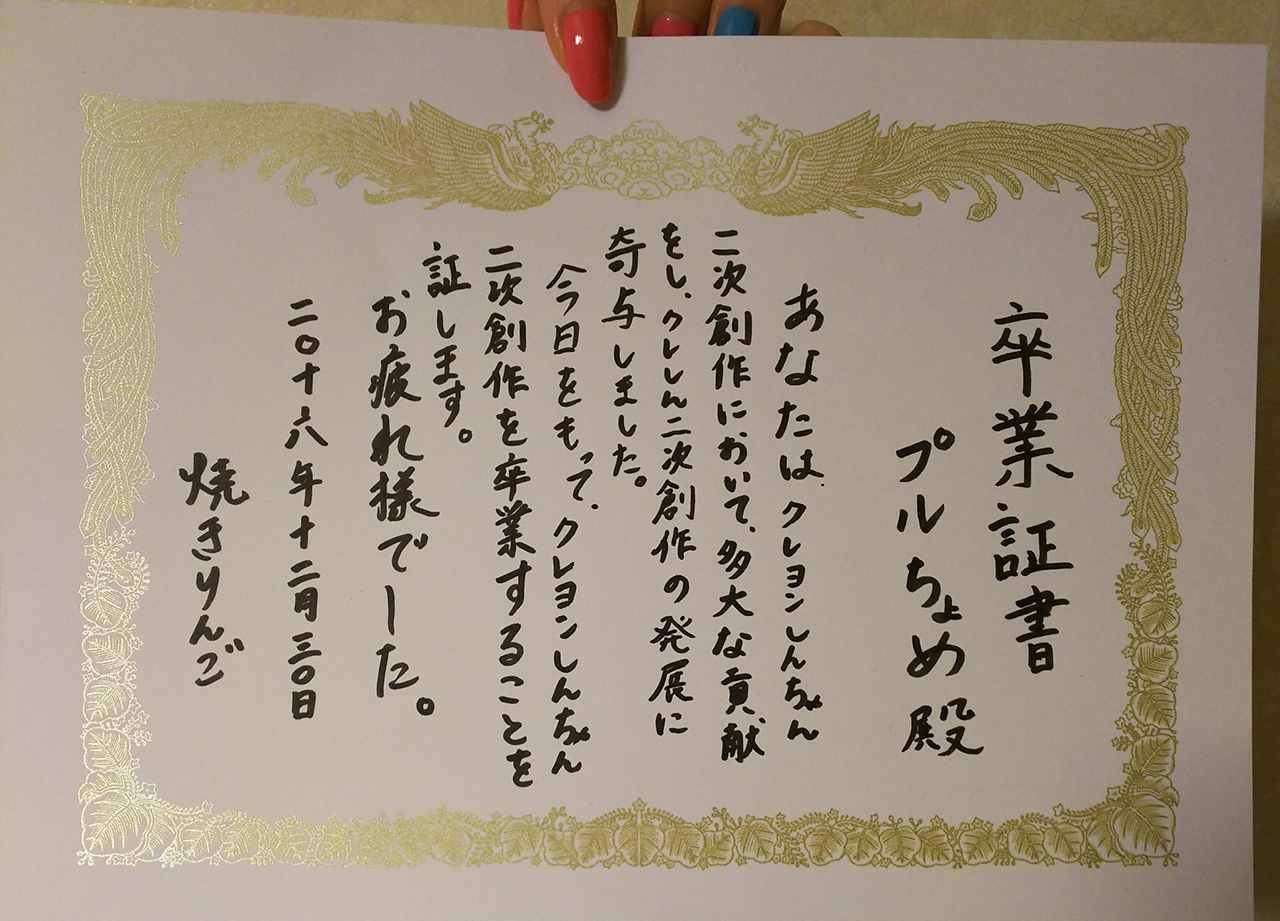 卒業証書
プルちょめ殿
あなたは、クレヨンしんちゃん
二次創作において、多大な貢献
をし、クレしん二次創作の発展に
寄与しました。
今日をもって、クレヨンしんちゃん
二次創作を卒業することを
証します。
お疲れ様でした。
二〇十六年十二月三〇日
焼きりんご